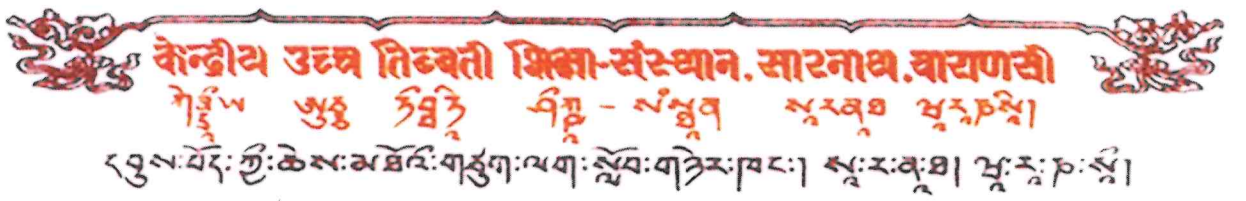 केन्द्रीय उच्च तिब्बती शिक्षा-संस्थान. सारनाथ.वाराणसी
ཀེནྡྲཱིཡ ཨུཙྩ ཏིབྦཏཱི ཤིཀྵཱ - སཾསྠཱན སཱརནཱཐ ཝཱརཱཎསཱི།
དབུས་བོད་ཀྱི་ཆེས་མཐོའི་གཙུག་ལག་སློབ་གཉེར་ཁང་། སཱ་ར་ནཱ་ཐ། ཝཱ་རཱ་ཎ་སཱི།